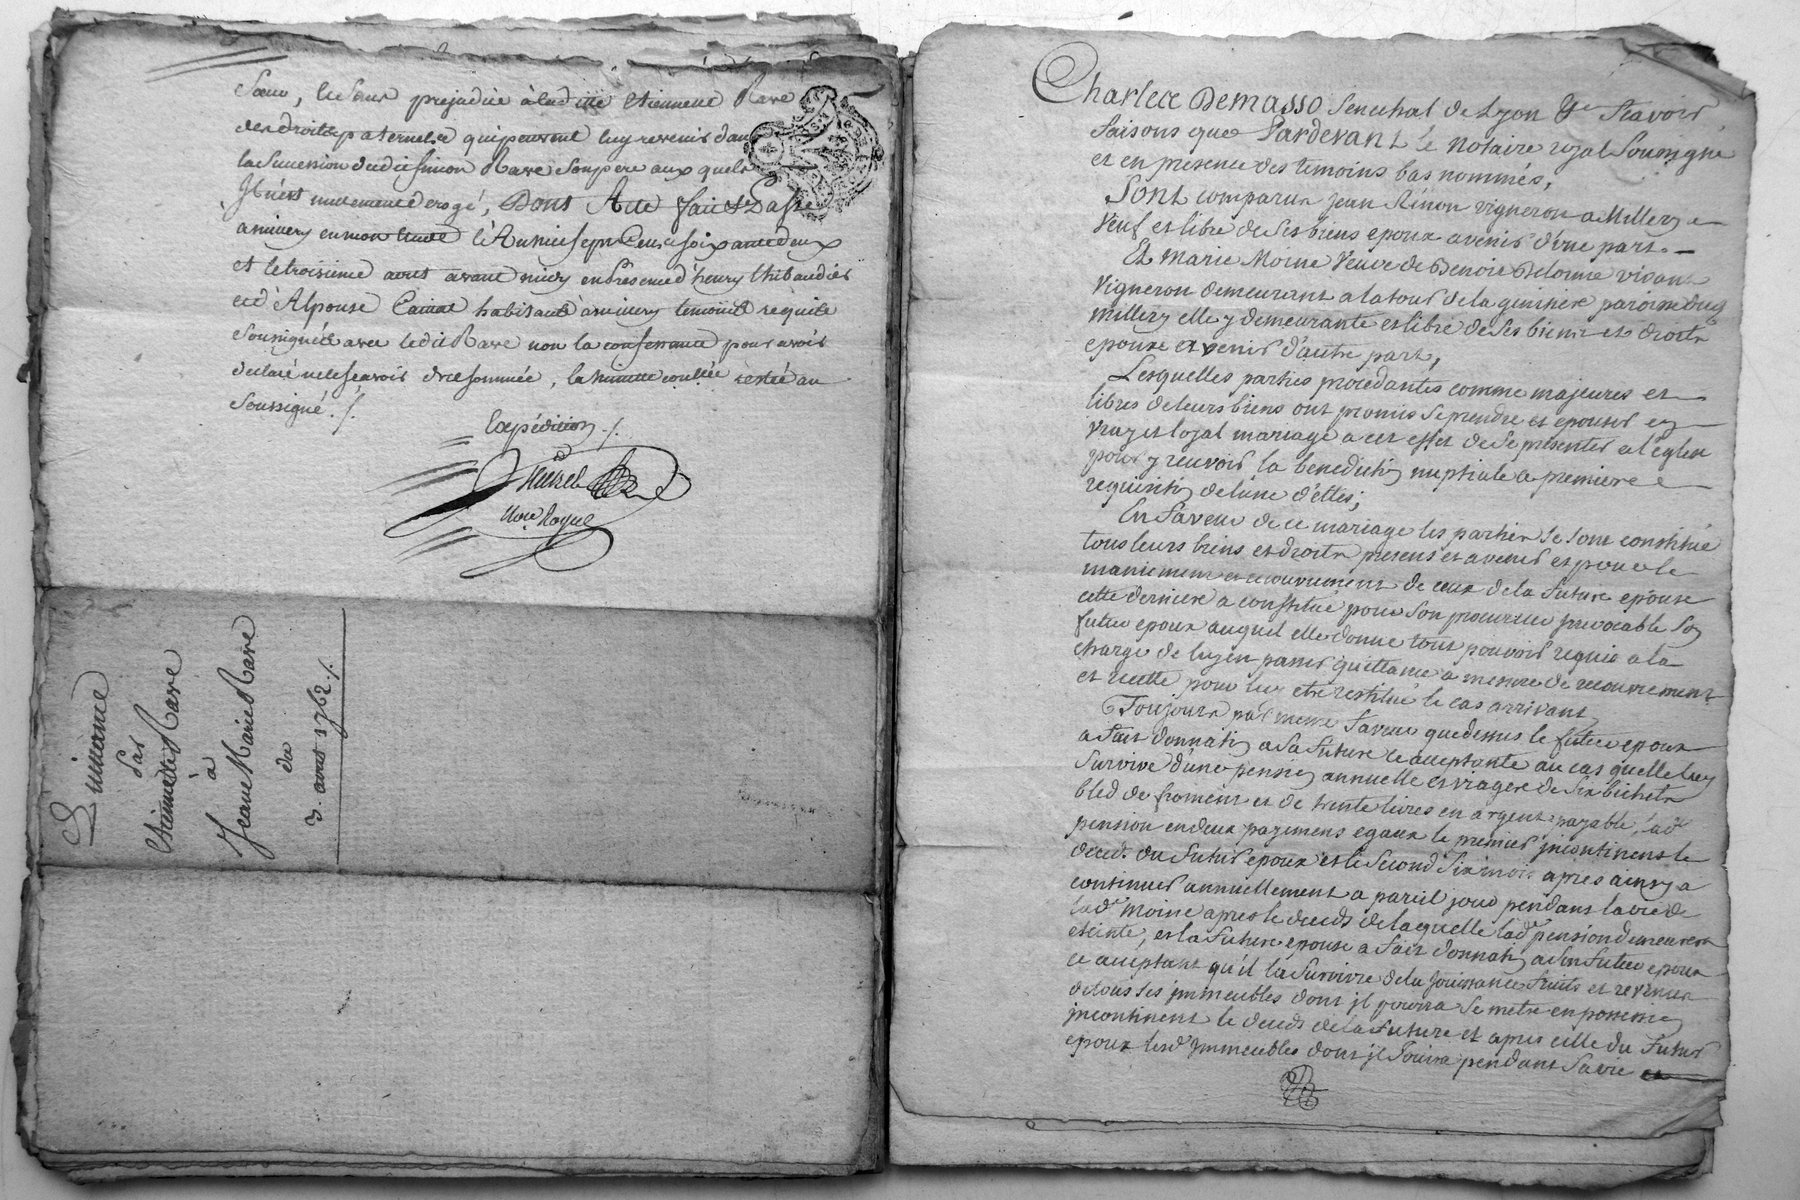 Soeur, le sans prejudice à ladite Etiennette Rave
des droits paternels qui peuvent luy revenir dans
la succession dudit Simon Rave son pere aux quels
Il n'est nullement derogé, Dont Acte fait & Passé
à millery en mon Etude l'An mil sept Cent soixante deux
et le troisieme aoust avant midy en Presence d'henry thibaudier
et d'Alponse habitants à millery temoins requis
soussignés avec ledit Rave non la confessante pour avoir
declaré ne le scavoir de ce sommée, la minute controllée restée au
soussigné ./.
Expédition ./.
Nore Royal
Quittance
Par
Etiennette Rave
à
Jeane Marie Rave
du
3. aoust 1762 ./.
Charles Demasso Senechal de Lyon &c Scavoir
faisons que Pardevant le Notaire royal soussigné
et en presence des temoins bas nommés,
Sont comparus Jean Rinon vigneron a Millery
veuf et libre de ses biens epoux a venir d'une part. —
Et Marie Moine veuve de Benoit Delorme vivant
vigneron demeurant a la tour de la paroisse dud
millery elle y demeurante et libre de ses biens et droits
epouse a venir d'autre part,
Lesquelles parties procedantes comme majeures et
libres de leurs biens ont promis se prendre et epouser en
vray et loyal mariage a cet effet de se presenter a l'eglise
pour y recevoir la benediction nuptiale a premiere
requisition de l'une d'elles;
En faveur de ce mariage les parties se sont constitué
tous leurs biens et droits presens et a venir et pour le
maniement et recouvrement de ceux de la future epouse
cette derniere a constitué pour son procureur irrevocable son
futur epoux auquel elle donne tout pouvoir requis a la
charge de luy en passer quittance a mesure de recouvrement
et recette pour luy etre restitué le cas arrivant,
Toujours par meme faveur que dessus le futur epoux
a fait donnation a sa future ce acceptante au cas qu'elle luy
survive d'une pension annuelle et viagere de six bichets
bled de froment et de trente livres en argent payable, lad
pension en deux payemens egaux le premier incontinent le
deceds du futur epoux et le second six mois apres ainsy a
continuer annuellement a pareil jour pendant la vie de
lad. Moine apres le deceds de laquelle lad. pension demeurera
eteinte, et la future epouse a fait donnation a son futur epoux
ce acceptant qu'il la survive de la jouissance fruits et revenus
de tous ses immeubles dont il pourra se metre en possession
incontinent le deceds de la future et apres celle du futur
epoux lesd. immeubles dont il jouira pendant sa vie